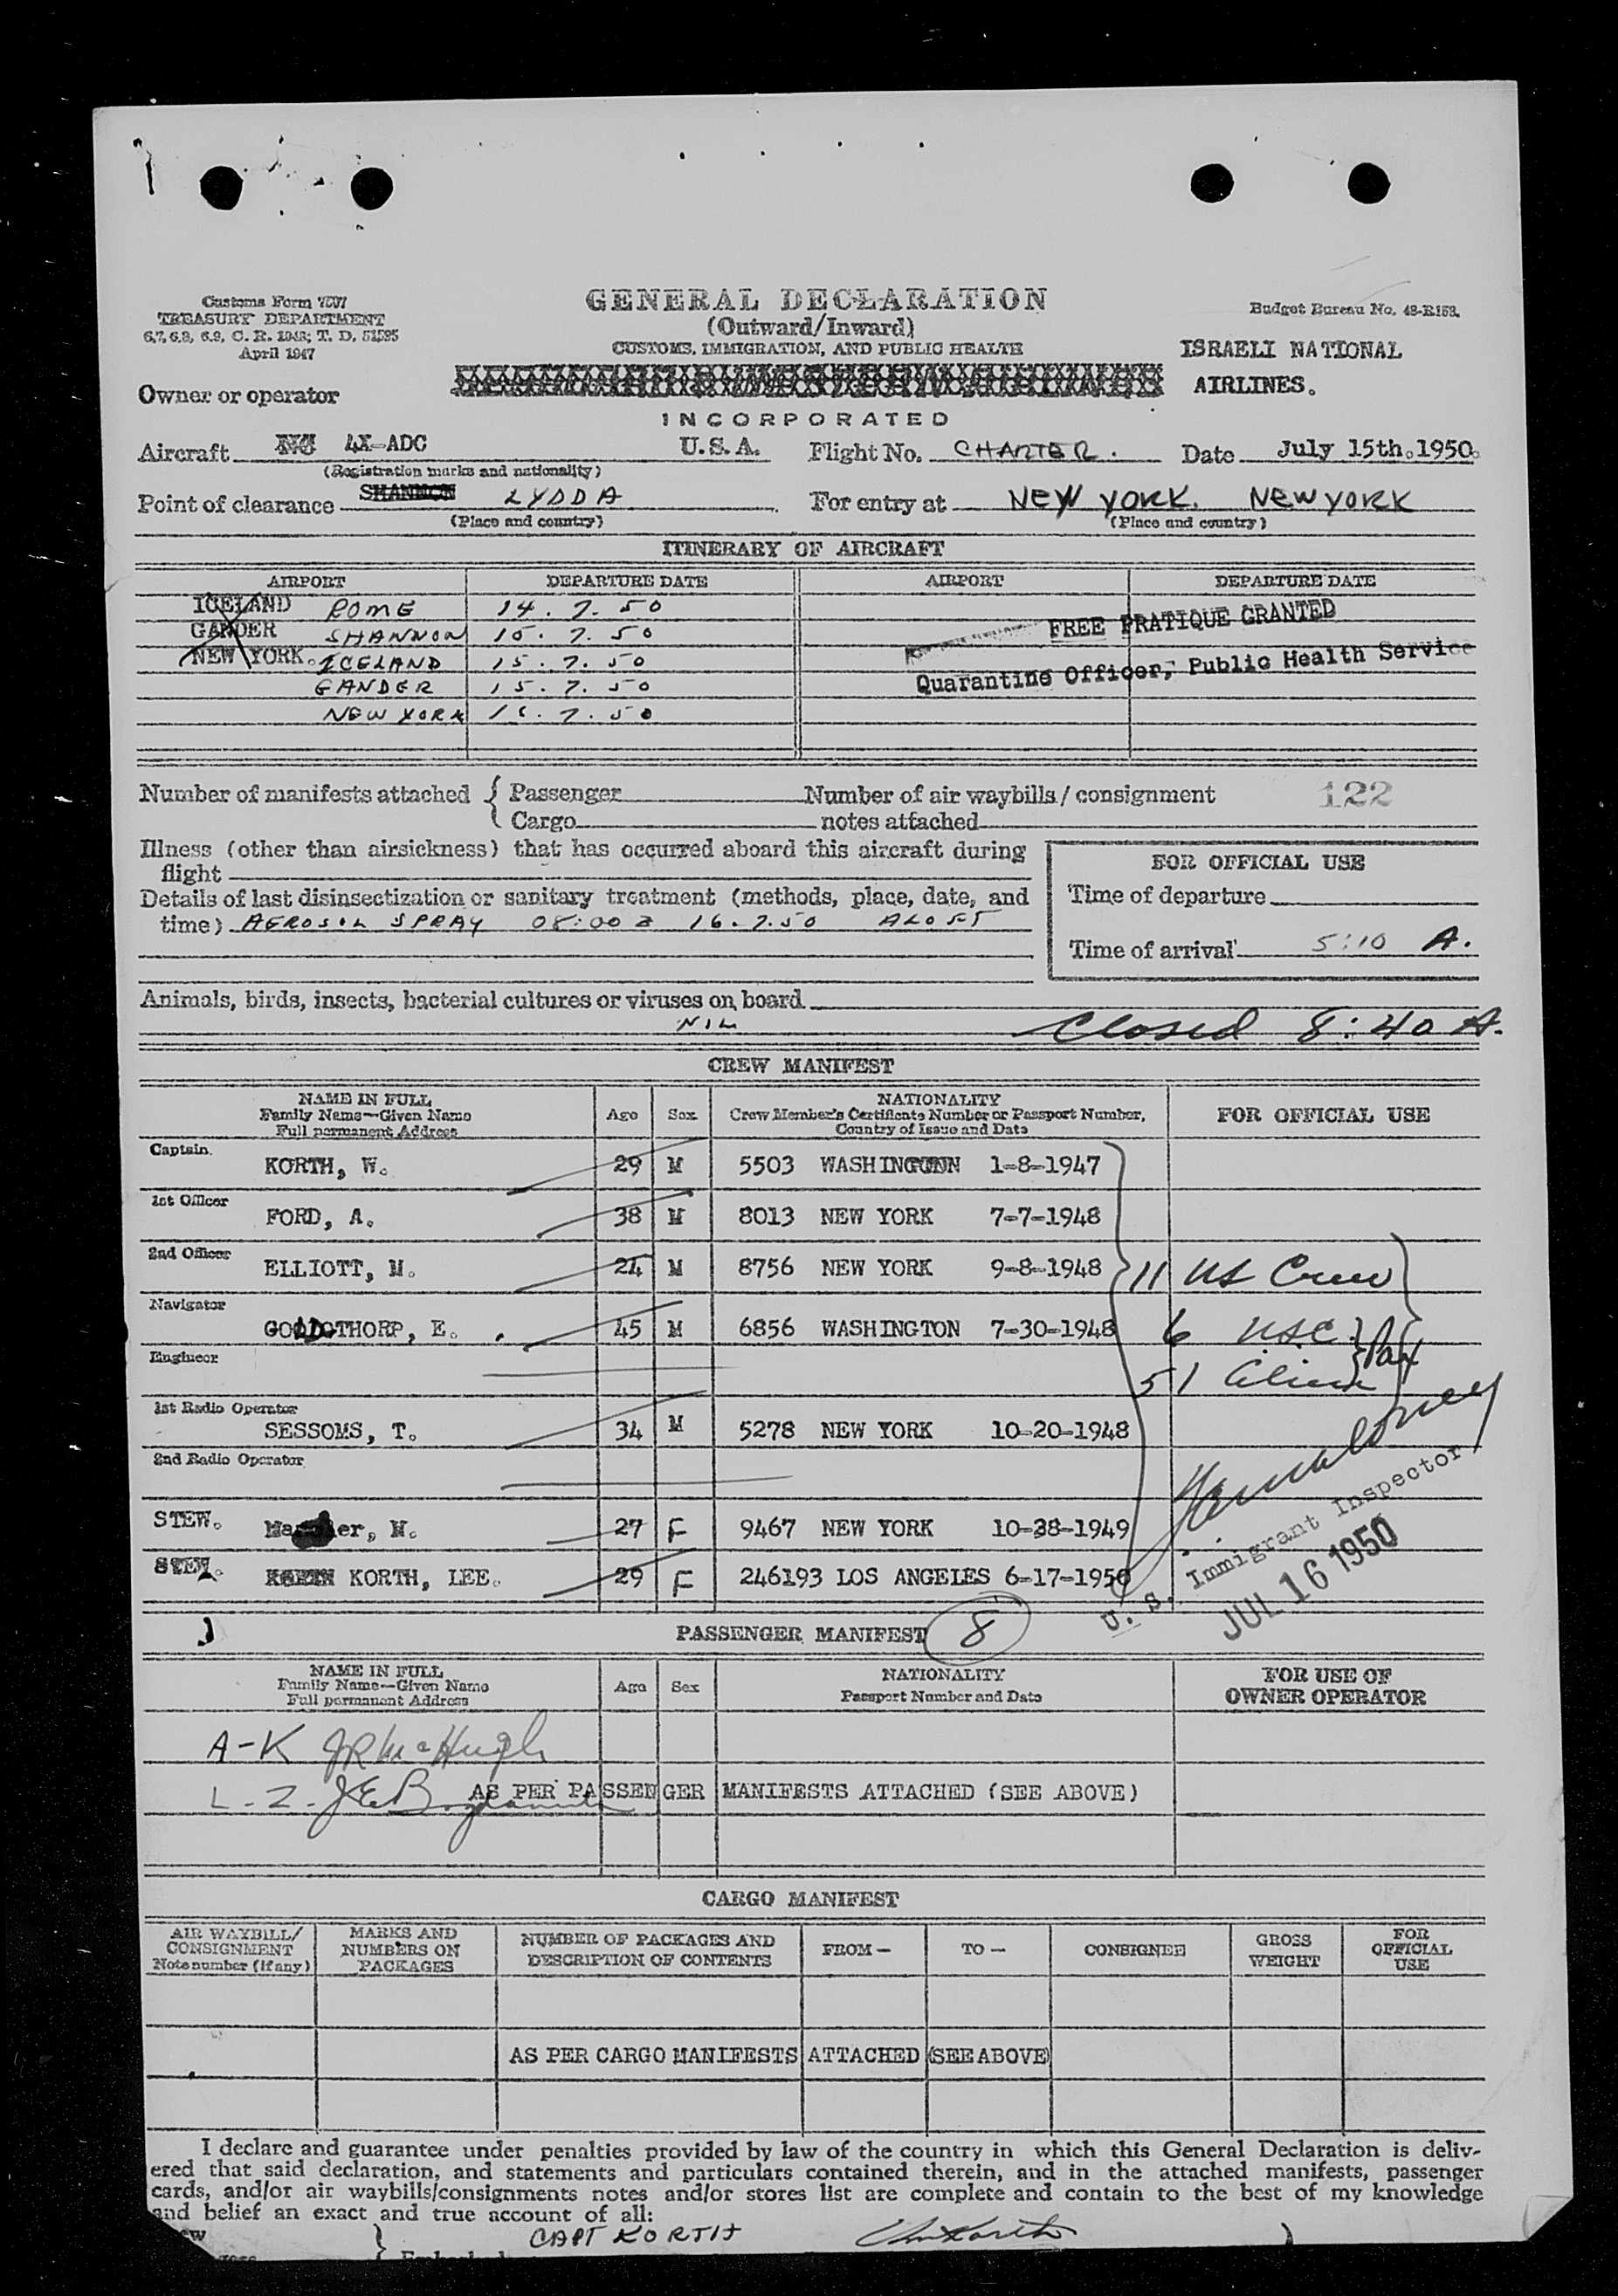 GENERAL DECLARATION
(Outward/Inward)
CUSTOMS, IMMIGRATION, AND PUBLIC HEALTH
Customs Form 7507
TREASURY DEPARTMENT
6.7, 6.8, 6.9, C. R. 1943; T. D. 51595
April 1947
Budget Bureau No. 48-R158.
ISRAELI NATIONAL
AIRLINES.
Owner or operator
INCORPORATED
Aircraft 4X-ADC U.S.A. Flight No. CHARTER. Date July 15th.1950.
(Registration marks and nationality)
Point of clearance SHANNON LYDDA For entry at NEW YORK. NEW YORK
(Place and country) (Place and country)
ITINERARY OF AIRCRAFT
AIRPORT DEPARTURE DATE AIRPORT DEPARTURE DATE
ICELAND ROME 14.7.50
GANDER SHANNON 15.7.50
NEW YORK. ICELAND 15.7.50
GANDER 15.7.50
NEW YORK 7.50
FREE PRATIQUE GRANTED
Quarantine Officer, Public Health Service
Number of manifests attached { Passenger Number of air waybills / consignment 122
Cargo notes attached
Illness (other than airsickness) that has occurred aboard this aircraft during
flight
Details of last disinsectization or sanitary treatment (methods, place, date, and
time) AEROSOL SPRAY 08:00 Z 16.7.50 ALOFT
FOR OFFICIAL USE
Time of departure
Time of arrival 5:10 A.
Animals, birds, insects, bacterial cultures or viruses on board
NIL
Closed 8:40 A.
CREW MANIFEST
NAME IN FULL
Family Name—Given Name
Full permanent Address
Age Sex
NATIONALITY
Crew Member's Certificate Number or Passport Number,
Country of Issue and Date
FOR OFFICIAL USE
Captain.
KORTH, W. 29 M 5503 WASHINGTON 1-8-1947
1st Officer
FORD, A. 38 M 8013 NEW YORK 7-7-1948
2nd Officer
ELLIOTT, M. 24 M 8756 NEW YORK 9-8-1948
11 US Crew
Navigator
GOLDTHORP, E. 45 M 6856 WASHINGTON 7-30-1948
6 USC } Pax
Engineer
51 Aliens
1st Radio Operator
SESSOMS, T. 34 M 5278 NEW YORK 10-20-1948
2nd Radio Operator
STEW. er, M. 27 F 9467 NEW YORK 10-28-1949
STEW. KORTH, LEE. 29 F 246193 LOS ANGELES 6-17-1950
U. S. Immigrant Inspector
JUL 16 1950
PASSENGER MANIFEST 8
NAME IN FULL
Family Name—Given Name
Full permanent Address
Age Sex
NATIONALITY
Passport Number and Date
FOR USE OF
OWNER OPERATOR
A-K JR McHugh
L-Z. J.E.
AS PER PASSENGER MANIFESTS ATTACHED (SEE ABOVE)
CARGO MANIFEST
AIR WAYBILL/
CONSIGNMENT
Note number (if any)
MARKS AND
NUMBERS ON
PACKAGES
NUMBER OF PACKAGES AND
DESCRIPTION OF CONTENTS
FROM—
TO—
CONSIGNEE
GROSS
WEIGHT
FOR
OFFICIAL
USE
AS PER CARGO MANIFESTS ATTACHED (SEE ABOVE)
I declare and guarantee under penalties provided by law of the country in which this General Declaration is deliv-
ered that said declaration, and statements and particulars contained therein, and in the attached manifests, passenger
cards, and/or air waybills/consignments notes and/or stores list are complete and contain to the best of my knowledge
and belief an exact and true account of all:
CAPT KORTH